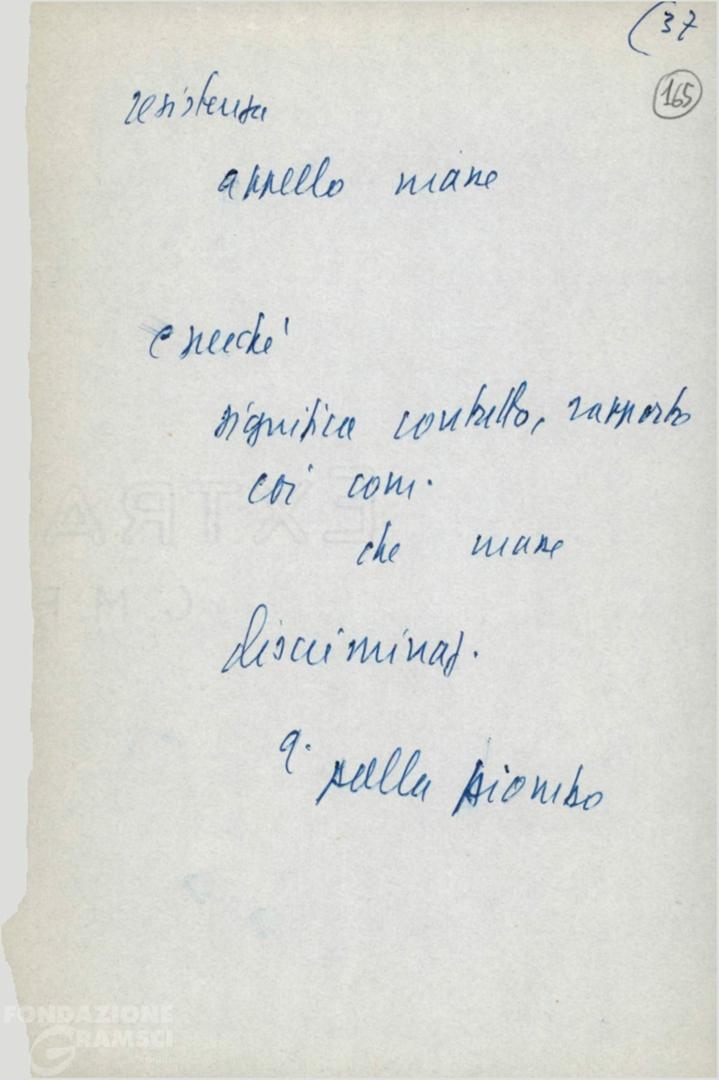 (37
165
resistenza
appello masse
e perché
significa controllo, rapporto
coi com.
che masse
discriminaz.
q. palla piombo
FONDAZIONE
GRAMSCI